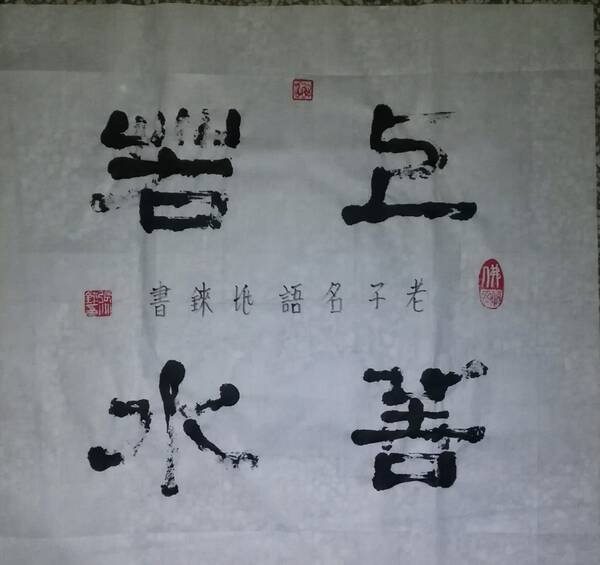 上善
若水
老子名語 錸書
佛